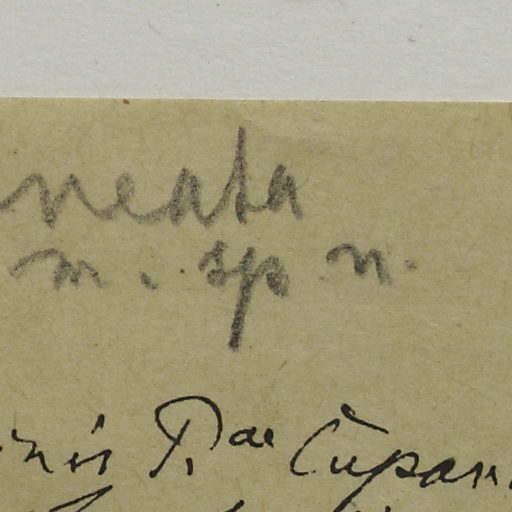 neata
m. sp n.
nis P.ae Cupan